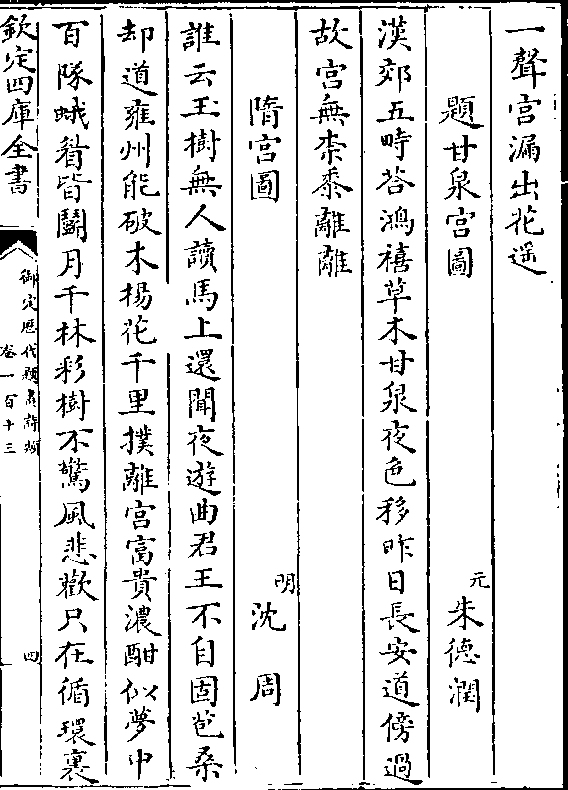 一聲宮漏出花遥
題甘泉宮圖
元朱德潤
漢郊五畤荅鴻禧草木甘泉夜色移昨日長安道傍過
故宮無柰黍離離
隋宮圖
明沈周
誰云玉樹無人讀馬上還聞夜遊曲君王不自固苞桑
却道雍州能破木楊花千里撲離宮富貴濃酣似夢中
百隊蛾眉皆鬭月千林彩樹不驚風悲歡只在循環裏
欽定四庫全書
御定歴代題畫詩類
卷一百十三
四